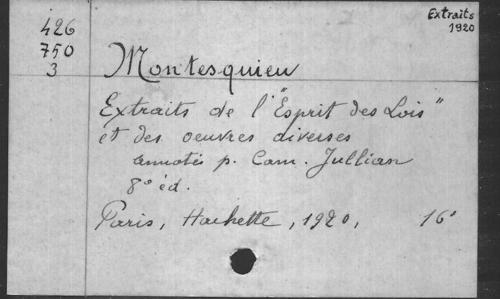 Extraits
1920
426
750
3
Montesquieu
Extraits de l'"Esprit des Lois"
et des oeuvres diverses
annotés p. Cam. Jullian
8° éd.
Paris, Hachette, 1920, 16°